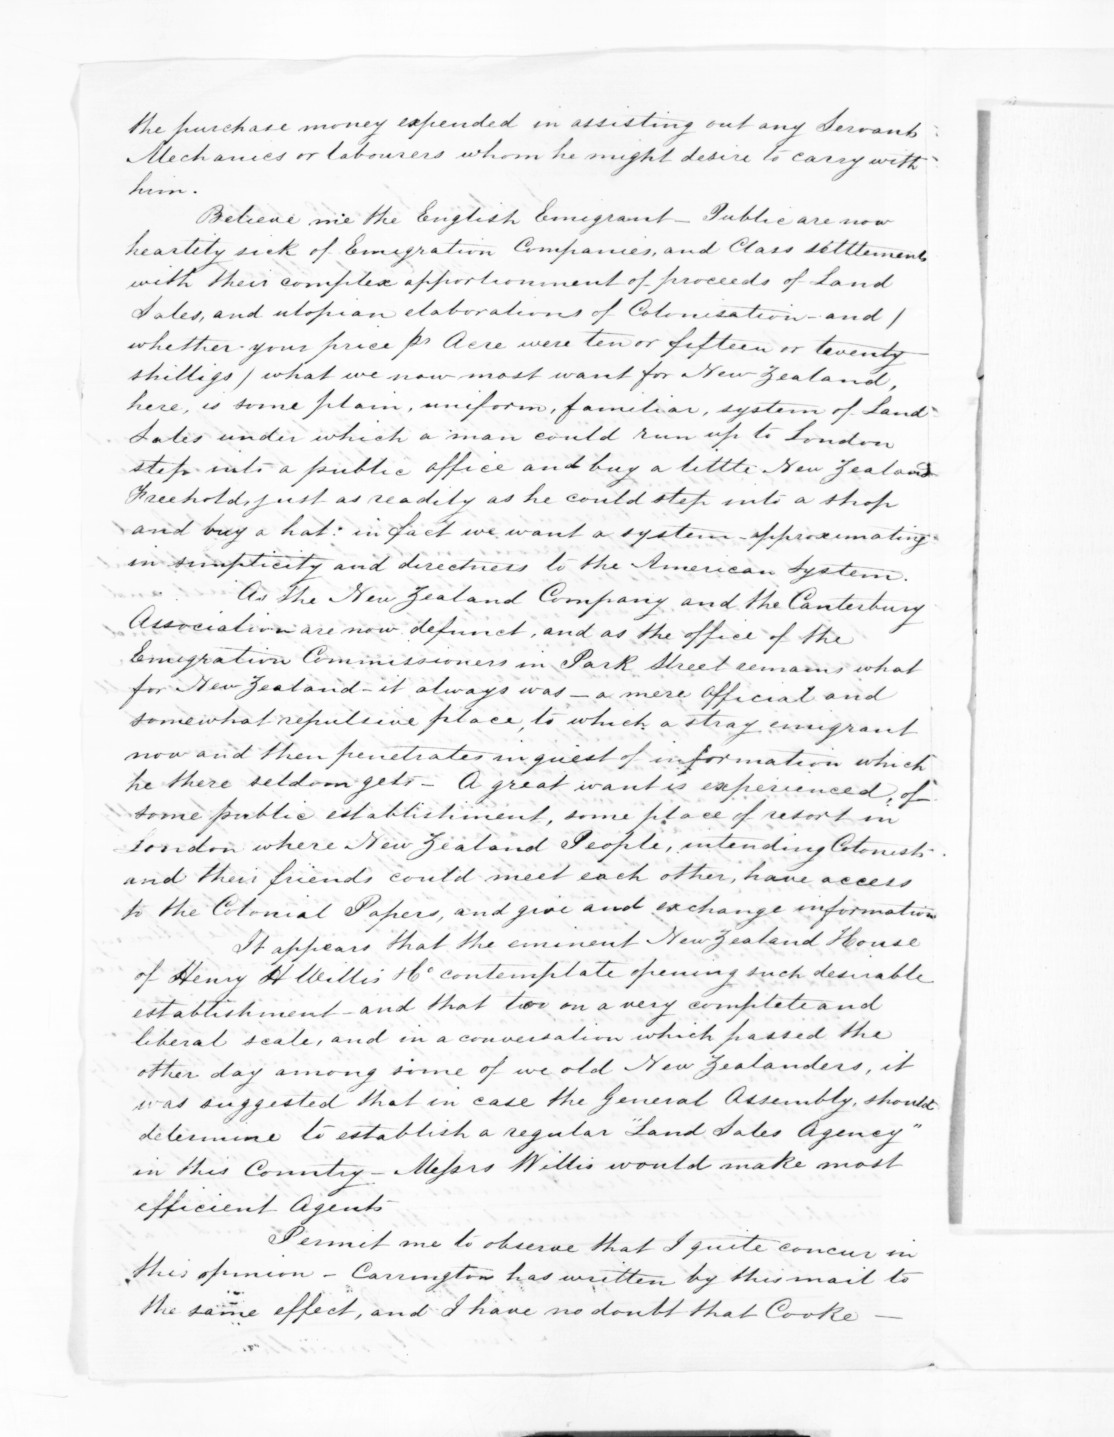 the purchase money expended in assisting out any Servants
Mechanics or labourers whom he might desire to carry with
him.
Believe me the English Emigrant – Public are now
heartily sick of Emigration Companies, and Class settlements
with their complex apportionment of proceeds of Land
Sales, and utopian elaborations of Colonisation – and /
whether your price pr Acre were ten or fifteen or twenty
shilligs / what we now most want for New Zealand,
here, is some plain, uniform, familiar, system of Land
Sales under which a man could run up to London
step into a public office and buy a little New Zealand
Freehold, just as readily as he could step into a shop
and buy a hat: in fact we want a system approximating
in simplicity and directness to the American System.
As the New Zealand Company and the Canterbury
Association are now defunct, and as the office of the
Emigration Commissioners in Park Street remains what
for New Zealand – it always was – a mere official and
somewhat repulsive place, to which a stray emigrant
now and then penetrates in quest of information which
he there seldom gets – A great want is experienced, of
some public establishment, some place of resort in
London where New Zealand People, intending Colonists
and their friends could meet each other, have access
to the Colonial Papers, and give and exchange information
It appears that the eminent New Zealand House
of Henry H Willis & Co contemplate opening such desirable
establishment – and that too on a very complete and
liberal scale, and in a conversation which passed the
other day among some of we old New Zealanders, it
was suggested that in case the General Assembly, should
determine to establish a regular "Land Sales Agency"
in this Country – Messrs Willis would make most
efficient Agents
Permit me to observe that I quite concur in
this opinion – Carrington has written by this mail to
the same effect, and I have no doubt that Cooke –